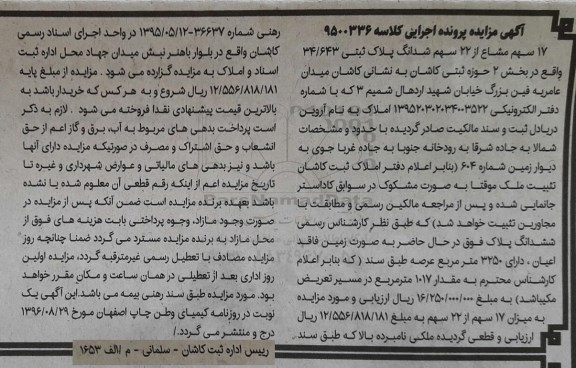 آگهی مزایده پرونده اجرایی کلاسه ۹۵۰۰۳۳۶
۱۷ سهم مشاع از ۲۲ سهم ششدانگ پلاک ثبتی ۳۴/۶۴۳
واقع در بخش ۲ حوزه ثبتی کاشان به نشانی کاشان میدان
عامریه فین بزرگ خیابان شهید اردهال شمیم ۳ که با شماره
دفتر الکترونیکی ۱۳۹۵۲۰۳۰۲۰۳۴۰۰۳۵۲۲ املاک به نام آروین
دریادل ثبت و سند مالکیت صادر گردیده با حدود و مشخصات
شمالا به جاده شرقا به رودخانه جنوبا به جاده غربا جوی به
دیوار زمین شماره ۶۰۴ (بنابر اعلام دفتر املاک ثبت کاشان
تثبیت ملک موقتا به صورت مشکوک در سوابق کاداستر
جانمایی شده و پس از مراجعه مالکین رسمی و مطابقت با
مجاورین تثبیت خواهد شد) که طبق نظر کارشناس رسمی
ششدانگ پلاک فوق در حال حاضر به صورت زمین فاقد
اعیان ، دارای ۳۲۵۰ متر مربع عرصه طبق سند ( که بنابر اعلام
کارشناس محترم به مقدار ۱۰۱۷ مترمربع در مسیر تعریض
میباشد) به مبلغ ۱۶/۲۵۰/۰۰۰/۰۰۰ ریال ارزیابی و مورد مزایده
به میزان ۱۷ سهم از ۲۲ سهم به مبلغ ۱۲/۵۵۶/۸۱۸/۱۸۱ ریال
ارزیابی و قطعی گردیده ملکی نامبرده بالا که طبق سند
رهنی شماره ۳۶۶۳۷-۱۳۹۵/۰۵/۱۲ در واحد اجرای اسناد رسمی
کاشان واقع در بلوار باهنر نبش میدان جهاد محل اداره ثبت
اسناد و املاک به مزایده گزارده می شود . مزایده از مبلغ پایه
۱۲/۵۵۶/۸۱۸/۱۸۱ ریال شروع و به هرکس که خریدار باشد به
بالاترین قیمت پیشنهادی نقدا فروخته می شود . لازم به ذکر
است پرداخت بدهی های مربوط به آب، برق و گاز اعم از حق
انشعاب و حق اشتراک و مصرف در صورتیکه مزایده دارای آنها
باشد و نیز بدهی های مالیاتی و عوارض شهرداری و غیره تا
تاریخ مزایده اعم از اینکه رقم قطعی آن معلوم شده یا نشده
باشد بعهده برنده مزایده است ضمن آنکه پس از مزایده در
صورت وجود مازاد، وجوه پرداختی بابت هزینه های فوق از
محل مازاد به برنده مزایده مسترد می گردد ضمنا چنانچه روز
مزایده مصادف با تعطیل رسمی غیرمترقبه گردد، مزایده اولین
روز اداری بعد از تعطیلی در همان ساعت و مکان مقرر خواهد
بود. مورد مزایده طبق سند رهنی بیمه می باشد.این آگهی یک
نوبت در روزنامه کیمیای وطن چاپ اصفهان مورخ ۱۳۹۶/۰۸/۲۹
درج و منتشر می گردد./
رییس اداره ثبت کاشان - سلمانی - م /الف ۱۶۵۳